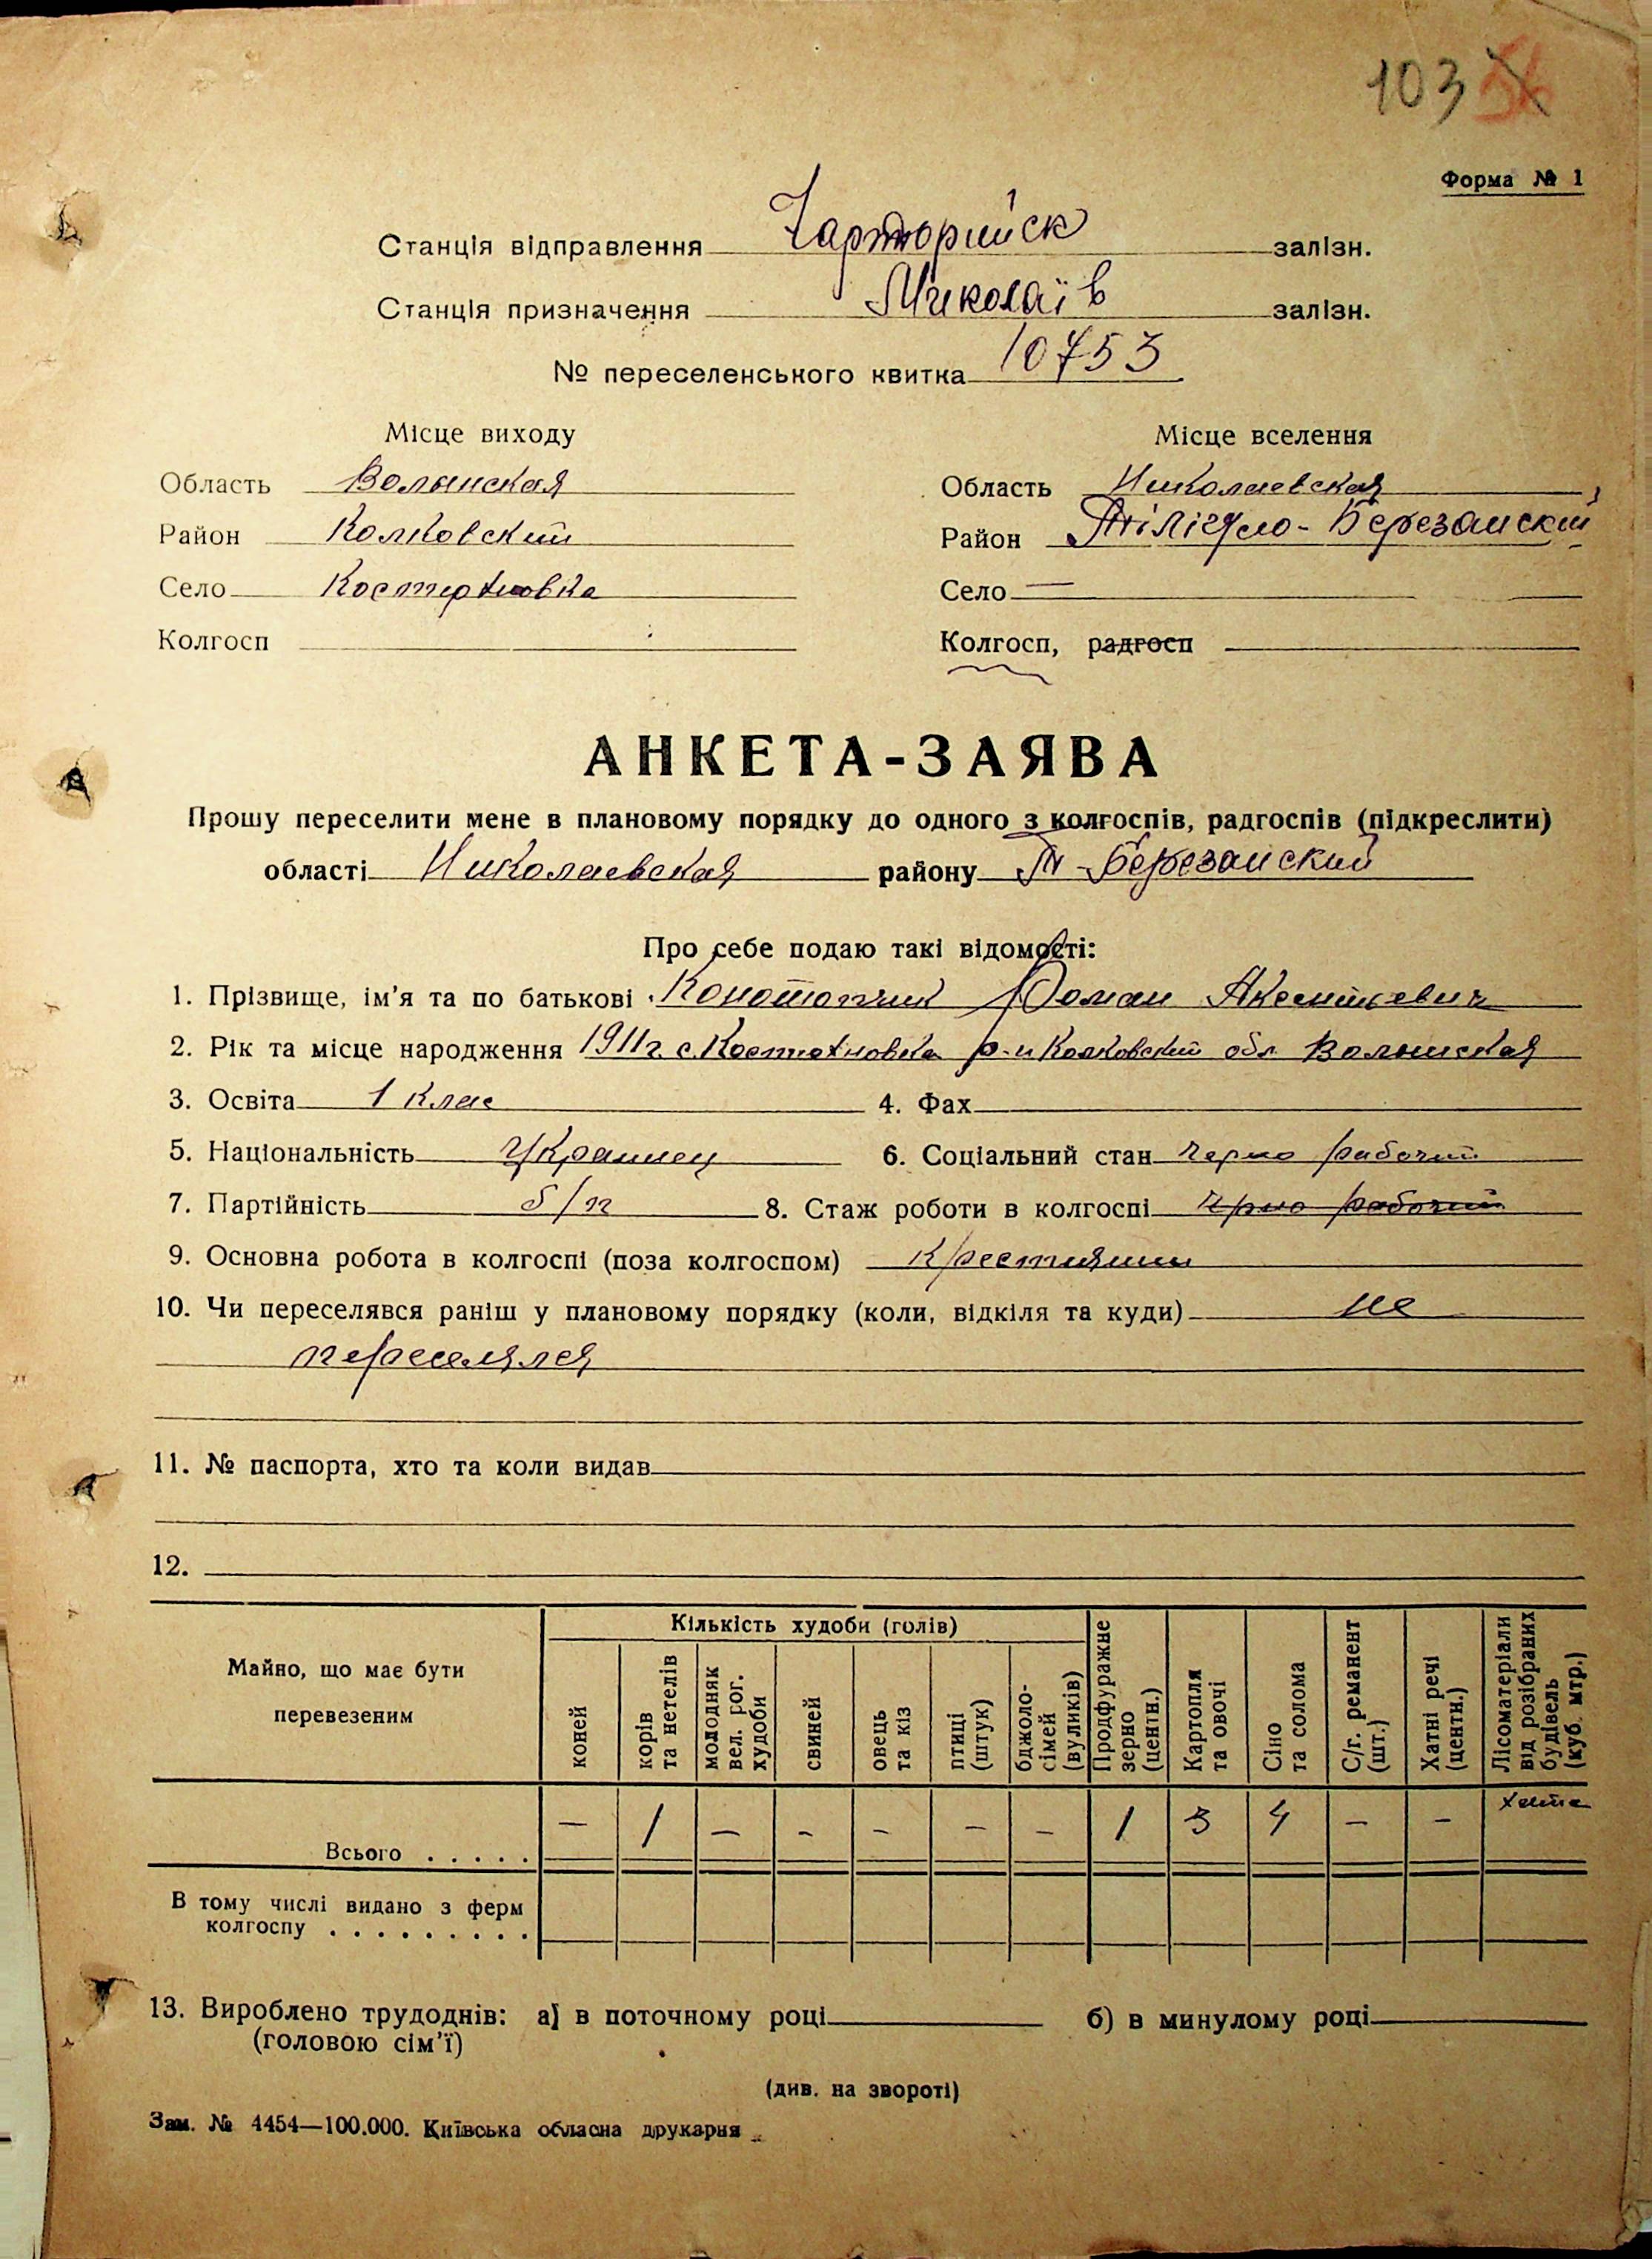 103 56
Форма № 1
Станція відправлення Чарторийск залізн.
Станція призначення Миколаїв залізн.
№ переселенського квитка 10753
Місце виходу Місце вселення
Область Волынская Область Николаевская
Район Колковский Район Тіліґуло-Березанский
Село Костюхновка Село —
Колгосп Колгосп, радгосп
АНКЕТА-ЗАЯВА
Прошу переселити мене в плановому порядку до одного з колгоспів, радгоспів (підкреслити)
області Николаевская району Т-Березанский
Про себе подаю такі відомості:
1. Прізвище, ім'я та по батькові Конотопчик Роман Аксентьевич
2. Рік та місце народження 1911 г. с. Костюхновка р-н Колковский обл Волынская
3. Освіта 1 клас 4. Фах
5. Національність Украинец 6. Соціальний стан Черно рабочий
7. Партійність б/п 8. Стаж роботи в колгоспі Чрно рабочий
9. Основна робота в колгоспі (поза колгоспом) Крестиянин
10. Чи переселявся раніш у плановому порядку (коли, відкіля та куди) не
переселялся
11. № паспорта, хто та коли видав
12.
Майно, що має бути перевезеним
Кількість худоби (голів)
коней
корів та нетелів
молодняк вел. рог. худоби
свиней
овець та кіз
птиці (штук)
бджоло-сімей (вуликів)
Продфуражне зерно (центн.)
Картопля та овочі
Сіно та солома
С/г. реманент (шт.)
Хатні речі (центн.)
Лісоматеріали від розібраних будівель (куб. мтр.)
Всього . . . . . — 1 — - - - - 1 3 4 — - хата
В тому числі видано з ферм
колгоспу . . . . . . . . .
13. Вироблено трудоднів: а) в поточному році б) в минулому році
(головою сім'ї)
(див. на звороті)
Зам. № 4454—100.000. Київська обласна друкарня